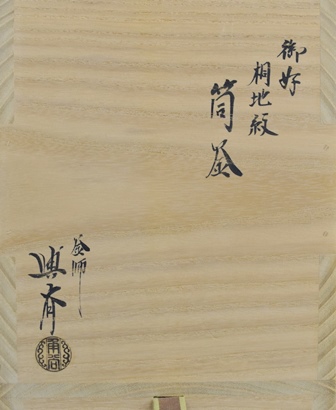 御好
桐地紋
筒釜
釜師
興斎